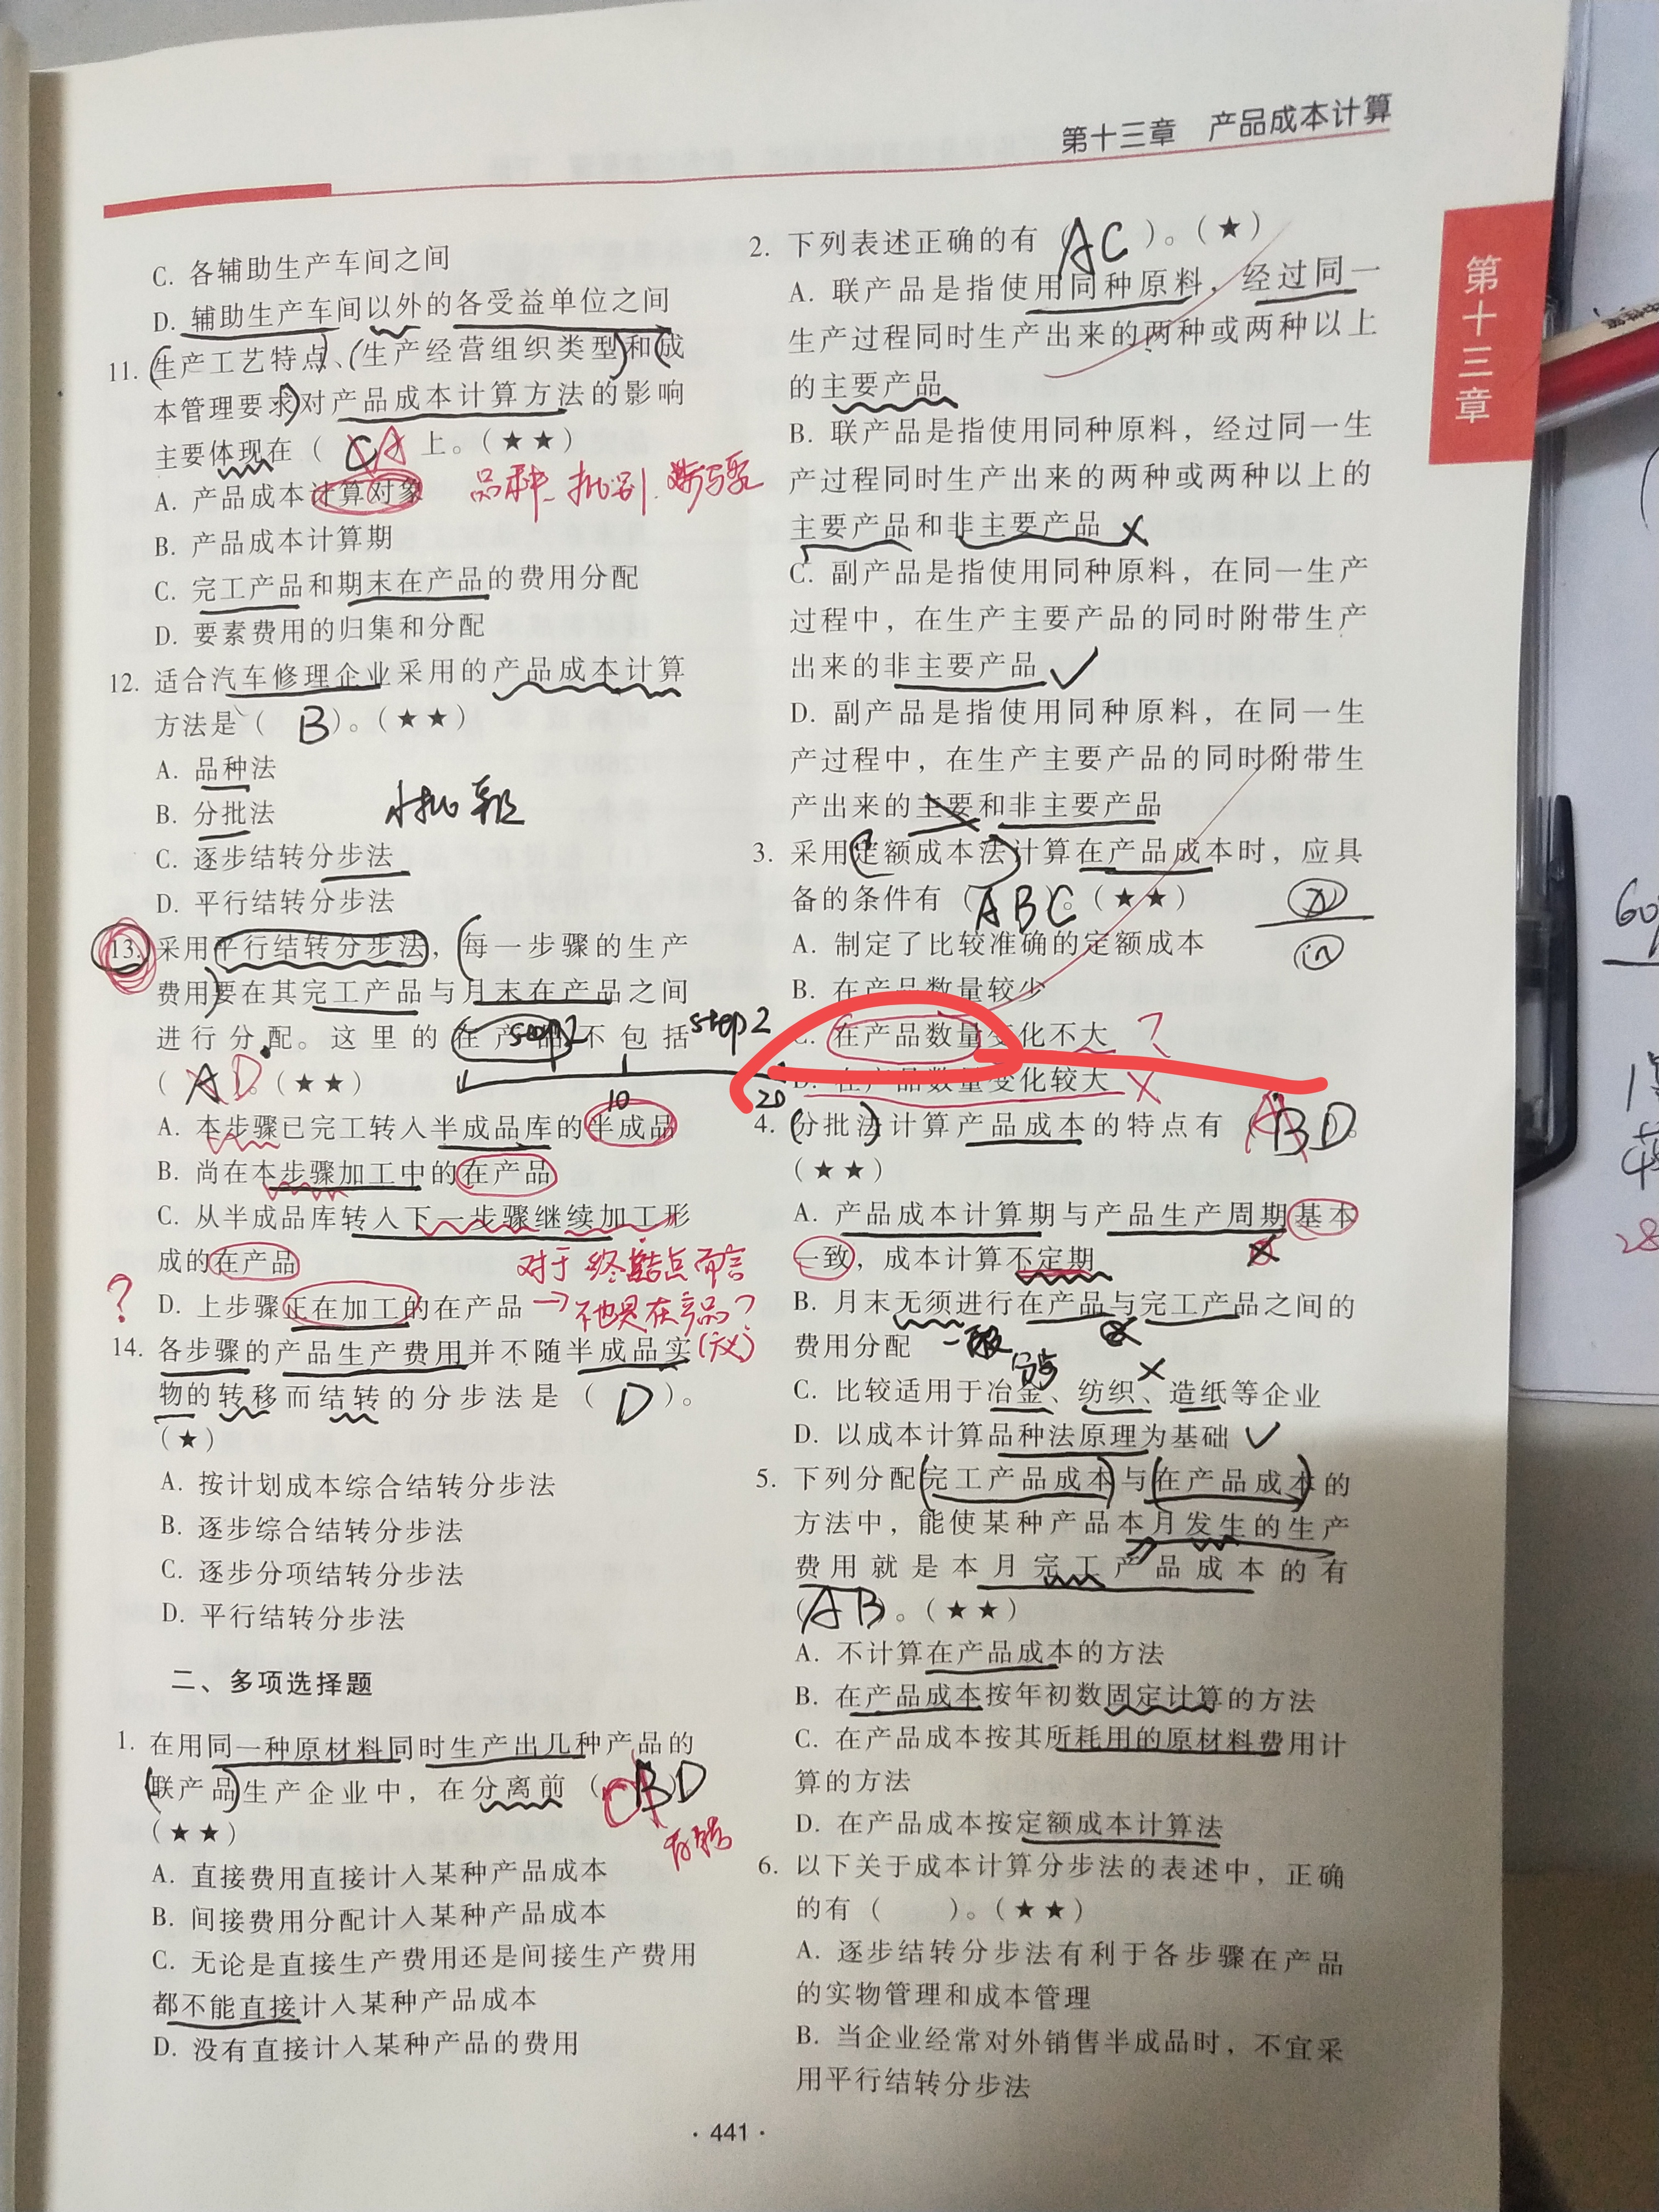 第十三章 产品成本计算
第十三章
C. 各辅助生产车间之间
D. 辅助生产车间以外的各受益单位之间
11. 生产工艺特点、生产经营组织类型和成
本管理要求对产品成本计算方法的影响
主要体现在（ C A 上。（★★）
A. 产品成本计算对象 品种、批别、步骤
B. 产品成本计算期
C. 完工产品和期末在产品的费用分配
D. 要素费用的归集和分配
12. 适合汽车修理企业采用的产品成本计算
方法是（ B ）。（★★）
A. 品种法
B. 分批法 小批 单
C. 逐步结转分步法
D. 平行结转分步法
13. 采用平行结转分步法，每一步骤的生产
费用要在其完工产品与月末在产品之间
进行分配。这里的在产品不包括
step2 step2
（ A D 。（★★）
10 20
A. 本步骤已完工转入半成品库的半成品
B. 尚在本步骤加工中的在产品
C. 从半成品库转入下一步骤继续加工形
成的在产品
对于终点而言
? D. 上步骤正在加工的在产品 →不也是在产品?
14. 各步骤的产品生产费用并不随半成品实
物的转移而结转的分步法是（ D ）。
（★）
A. 按计划成本综合结转分步法
B. 逐步综合结转分步法
C. 逐步分项结转分步法
D. 平行结转分步法
二、多项选择题
1. 在用同一种原材料同时生产出几种产品的
联产品生产企业中，在分离前（ C BD 。
（★★）
A. 直接费用直接计入某种产品成本
B. 间接费用分配计入某种产品成本
C. 无论是直接生产费用还是间接生产费用
都不能直接计入某种产品成本
D. 没有直接计入某种产品的费用
2. 下列表述正确的有（ AC ）。（★）
A. 联产品是指使用同种原料，经过同一
生产过程同时生产出来的两种或两种以上
的主要产品
B. 联产品是指使用同种原料，经过同一生
产过程同时生产出来的两种或两种以上的
主要产品和非主要产品 ×
C. 副产品是指使用同种原料，在同一生产
过程中，在生产主要产品的同时附带生产
出来的非主要产品 ✓
D. 副产品是指使用同种原料，在同一生
产过程中，在生产主要产品的同时附带生
产出来的主要和非主要产品
3. 采用定额成本法计算在产品成本时，应具
备的条件有（ ABC 。（★★）
A. 制定了比较准确的定额成本
B. 在产品数量较少
C. 在产品数量变化不大 ?
D. 在产品数量变化较大 ×
4. 分批法计算产品成本的特点有（ A BD 。
（★★）
A. 产品成本计算期与产品生产周期基本
一致，成本计算不定期
B. 月末无须进行在产品与完工产品之间的
费用分配 一般
C. 比较适用于冶金、纺织、造纸等企业
×
D. 以成本计算品种法原理为基础 ✓
5. 下列分配完工产品成本与在产品成本的
方法中，能使某种产品本月发生的生产
费用就是本月完工产品成本的有
（ AB ）。（★★）
A. 不计算在产品成本的方法
B. 在产品成本按年初数固定计算的方法
C. 在产品成本按其所耗用的原材料费用计
算的方法
D. 在产品成本按定额成本计算法
6. 以下关于成本计算分步法的表述中，正确
的有（ ）。（★★）
A. 逐步结转分步法有利于各步骤在产品
的实物管理和成本管理
B. 当企业经常对外销售半成品时，不宜采
用平行结转分步法
· 441 ·